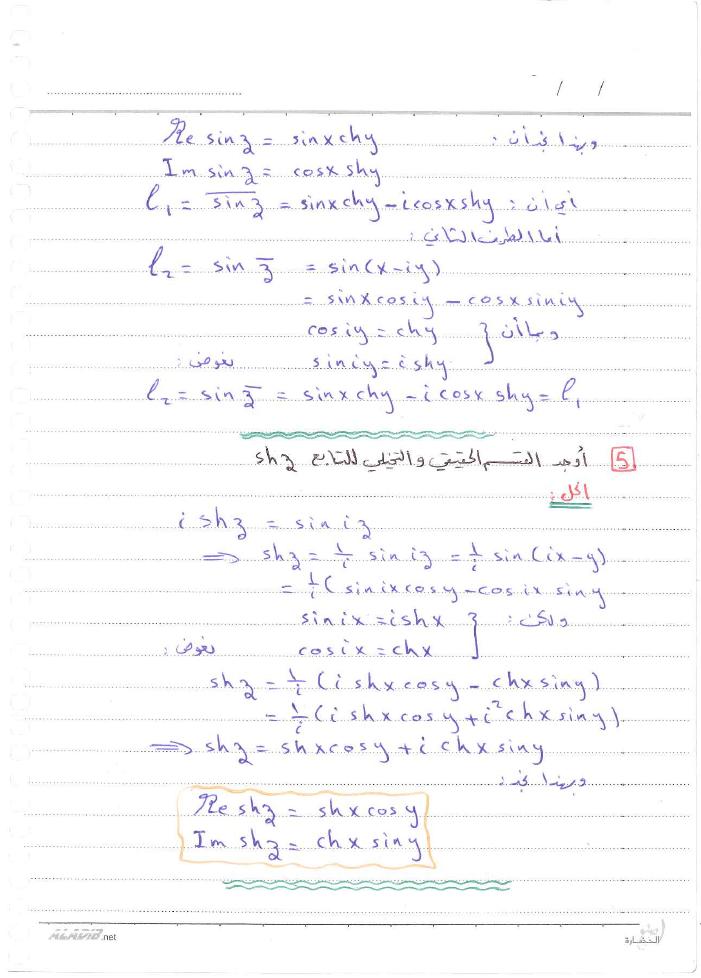 / /
وبهذا نجد أن : Re sin z = sinx chy
Im sin z = cosx shy
أي أن : l₁ = \overline{sin z} = sinx chy - i cosx shy
أما الطرف الثاني :
l₂ = sin z̄ = sin(x-iy)
= sinx cosiy - cosx siniy
وبما أن } cosiy = chy
siniy = ishy نعوض :
l₂ = sin z̄ = sinx chy - i cosx shy = l₁
5 أوجد القسم الحقيقي والتخيلي للتابع sh z
الحل :
i sh z = sin iz
⇒ sh z = 1/i sin iz = 1/i sin (ix-y)
= 1/i ( sinix cosy - cosix siny
ولكن : } sinix = ishx
cosix = chx نعوض :
sh z = 1/i ( i shx cosy - chx siny )
= 1/i ( i shx cosy + i² chx siny )
⇒ sh z = shx cosy + i chx siny
وبهذا نجد :
Re sh z = shx cosy
Im sh z = chx siny
ALADIB.net
الحضارة